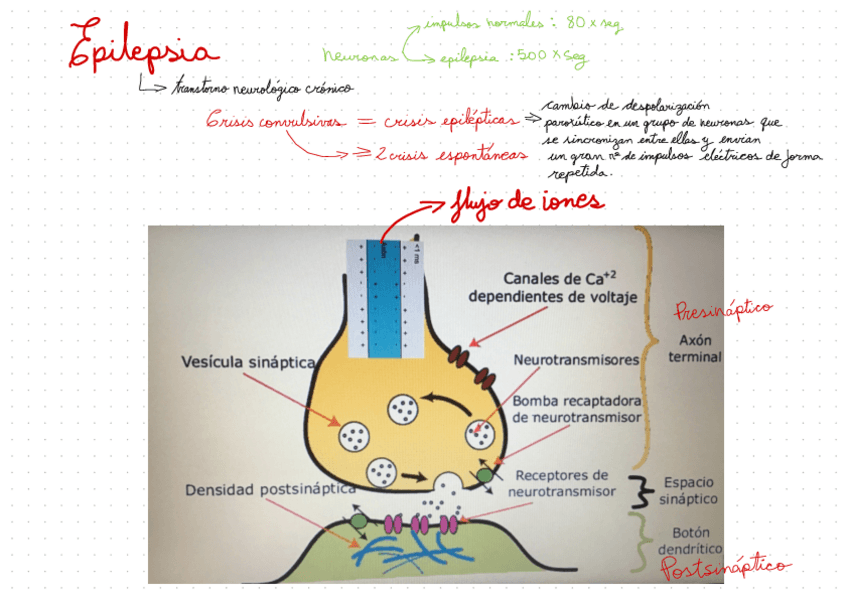 Epilepsia
impulsos normales: 80 x seg
neuronas
epilepsia : 500 x seg
transtorno neurológico crónico
Crisis convulsivas = crisis epilépticas ⇒
cambio de despolarización
paroxístico en un grupo de neuronas que
se sincronizan entre ellas y envian
un gran nº de impulsos eléctricos de forma
repetida.
≥ 2 crisis espontáneas
flujo de iones
Axón
<1 ms
Canales de Ca+2
dependientes de voltaje
Presináptico
Axón
terminal
Vesícula sináptica
Neurotransmisores
Bomba recaptadora
de neurotransmisor
Densidad postsináptica
Receptores de
neurotransmisor
Espacio
sináptico
Botón
dendrítico
Postsináptico